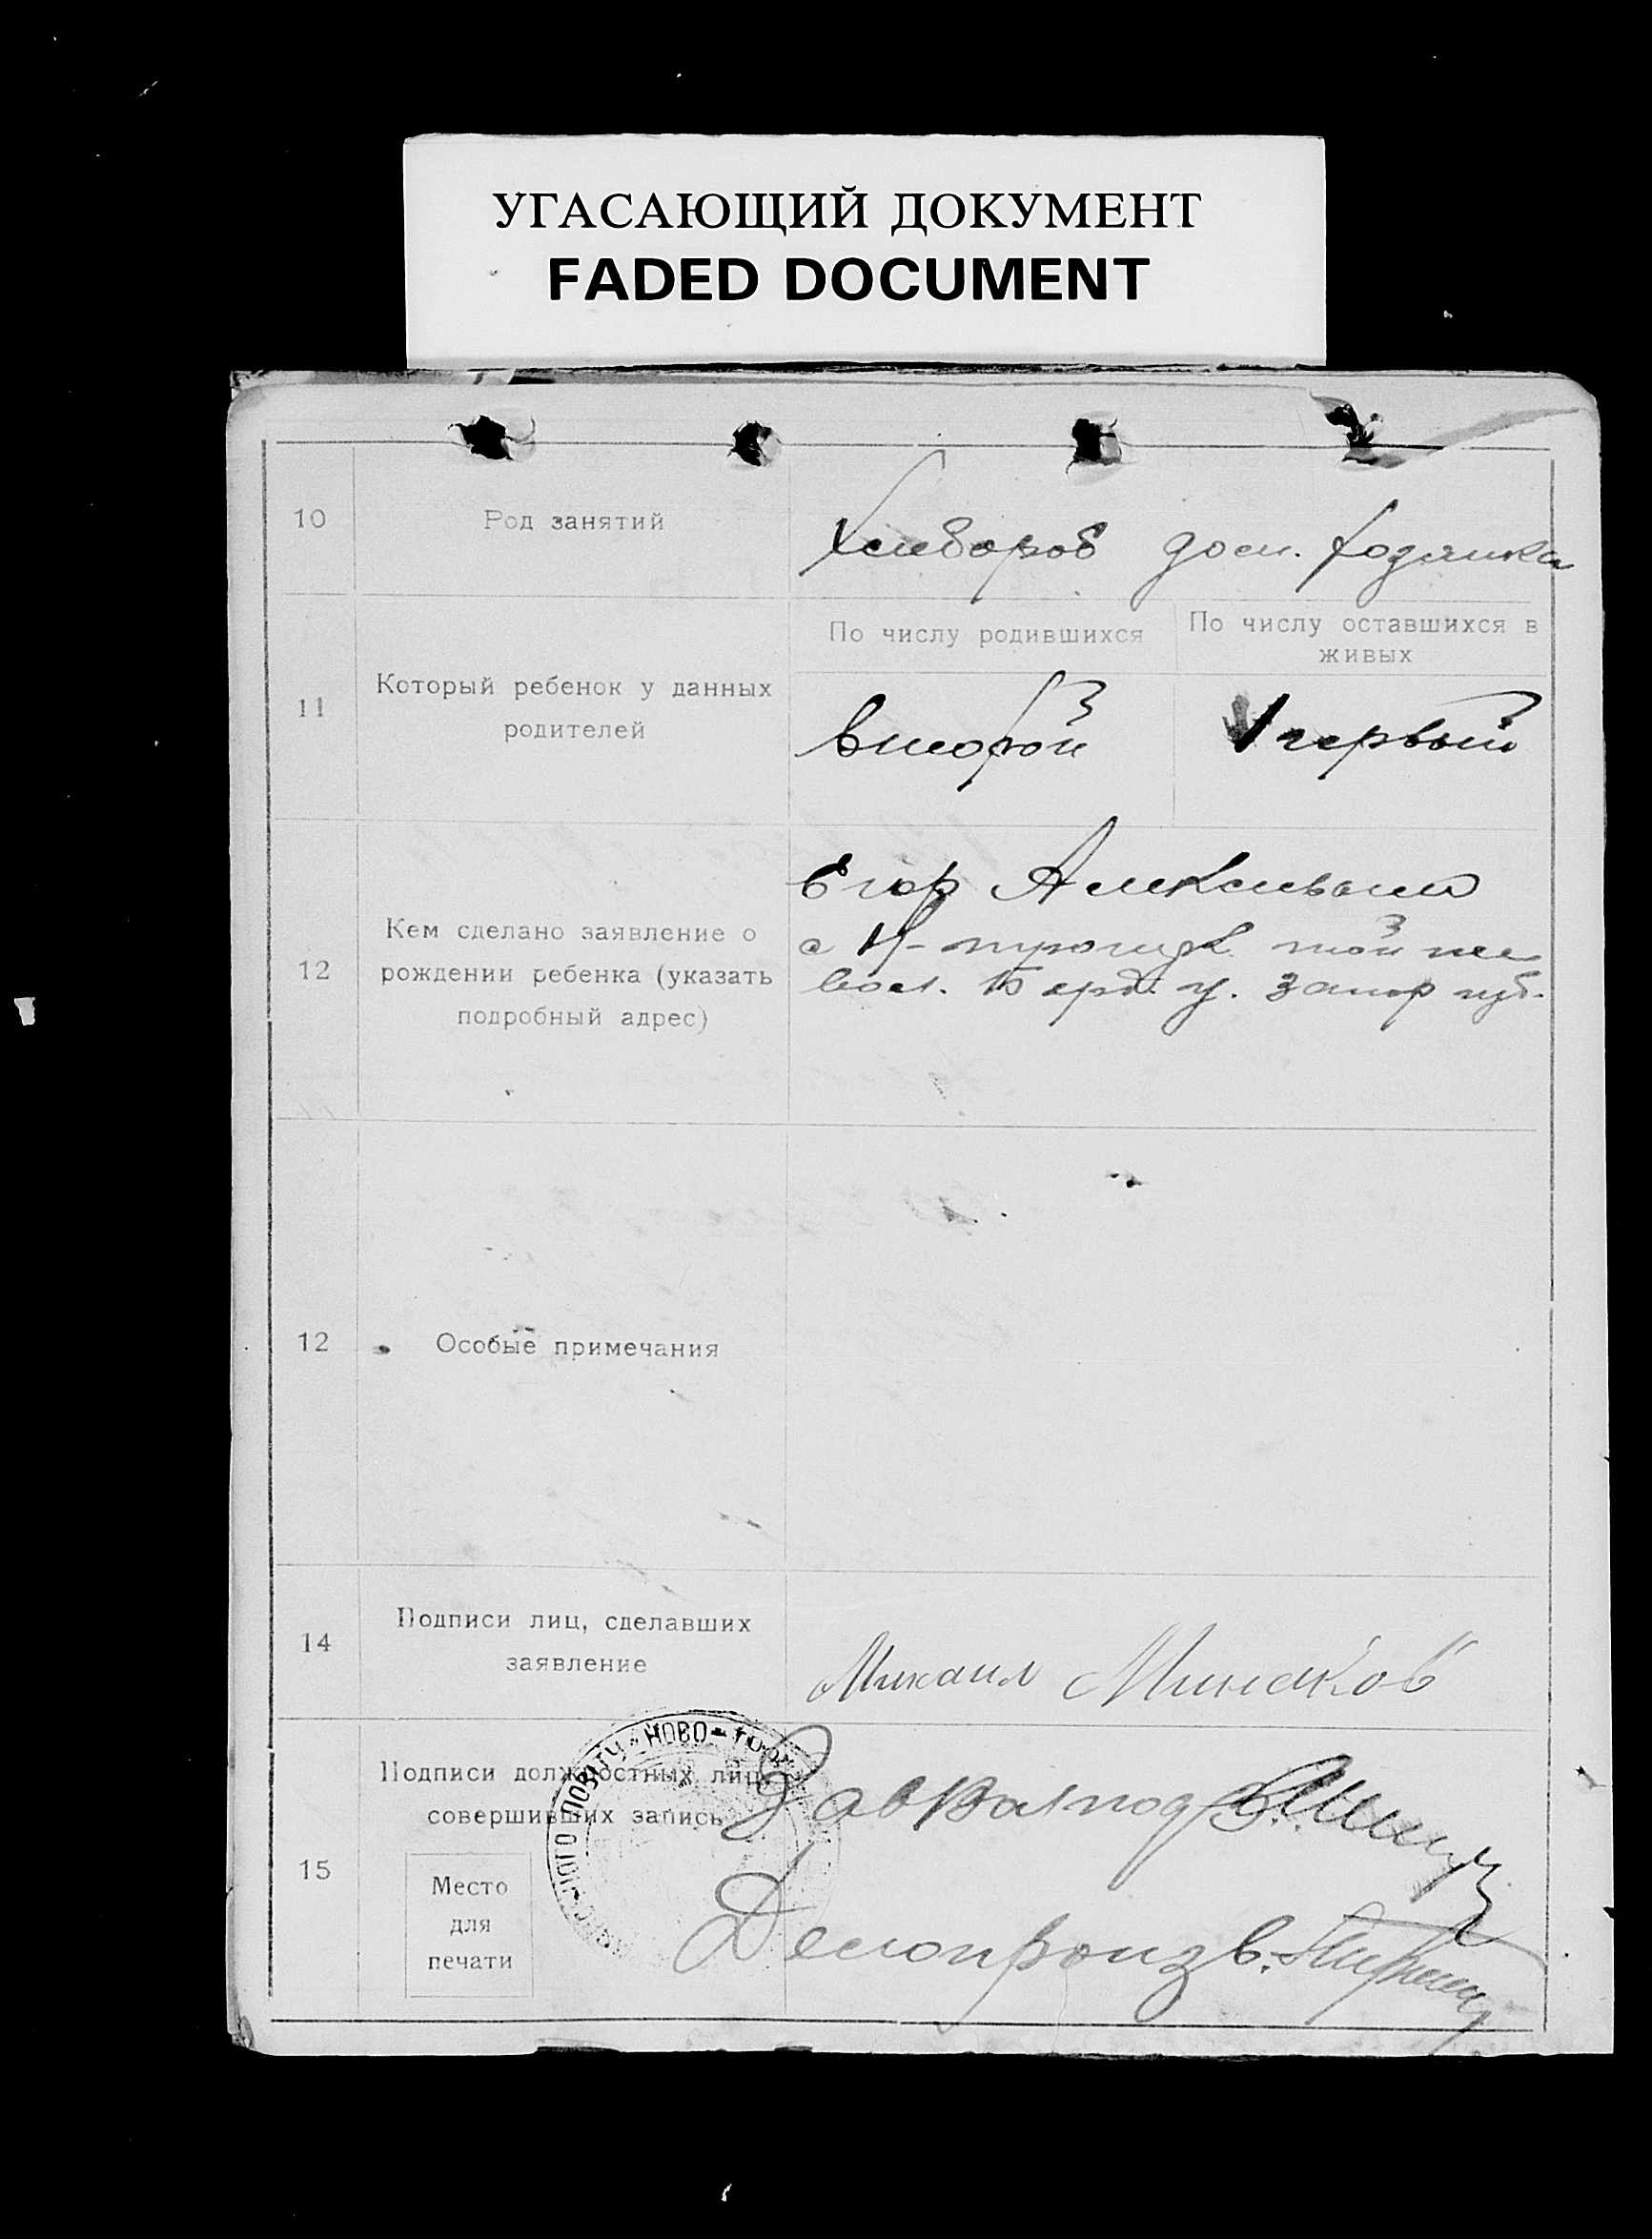 УГАСАЮЩИЙ ДОКУМЕНТ
FADED DOCUMENT
10
Род занятий
Хлебороб дом. хозяйка
11
Который ребенок у данных
родителей
По числу родившихся
По числу оставшихся в
живых
второй
первый
12
Кем сделано заявление о
рождении ребенка (указать
подробный адрес)
Егор
с Н- той же
вол. Берд. у. Запор губ.
12
Особые примечания
14
Подписи лиц, сделавших
заявление
Михаил Минаков
15
Подписи должностных лиц,
совершивших запись
Место
для
печати
НОВО-
Завед
Делопроизв.